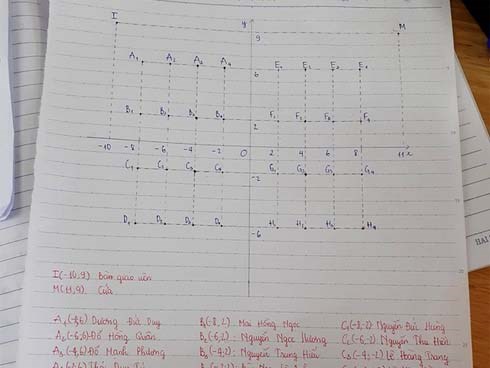 I y M
9
A₁ A₂ A₃ A₄ 6 E₁ E₂ E₃ E₄
B₁ B₂ B₃ B₄ 2 F₁ F₂ F₃ F₄
-10 -8 -6 -4 -2 O 2 4 6 8 11 x
C₁ C₂ C₃ C₄ -2 G₁ G₂ G₃ G₄
D₁ D₂ D₃ D₄ -6 H₁ H₂ H₃ H₄
I(-10,9) Bàn giáo viên
M(11,9) Cửa
A₁(-8,6) Dương Đức Duy B₁(-8,2): Mai Hồng Ngọc C₁(-8,-2): Nguyễn Đức
A₂(-6,6) Đỗ Hồng Quân B₂(-6,2): Nguyễn Ngọc C₂(-6,-2): Nguyễn Thu
A₃(-4,6) Đỗ Mạnh Phương B₃(-4,2): Nguyễn Trung Hiếu C₃(-4,-2) Lê Hoàng Trang
HẢI